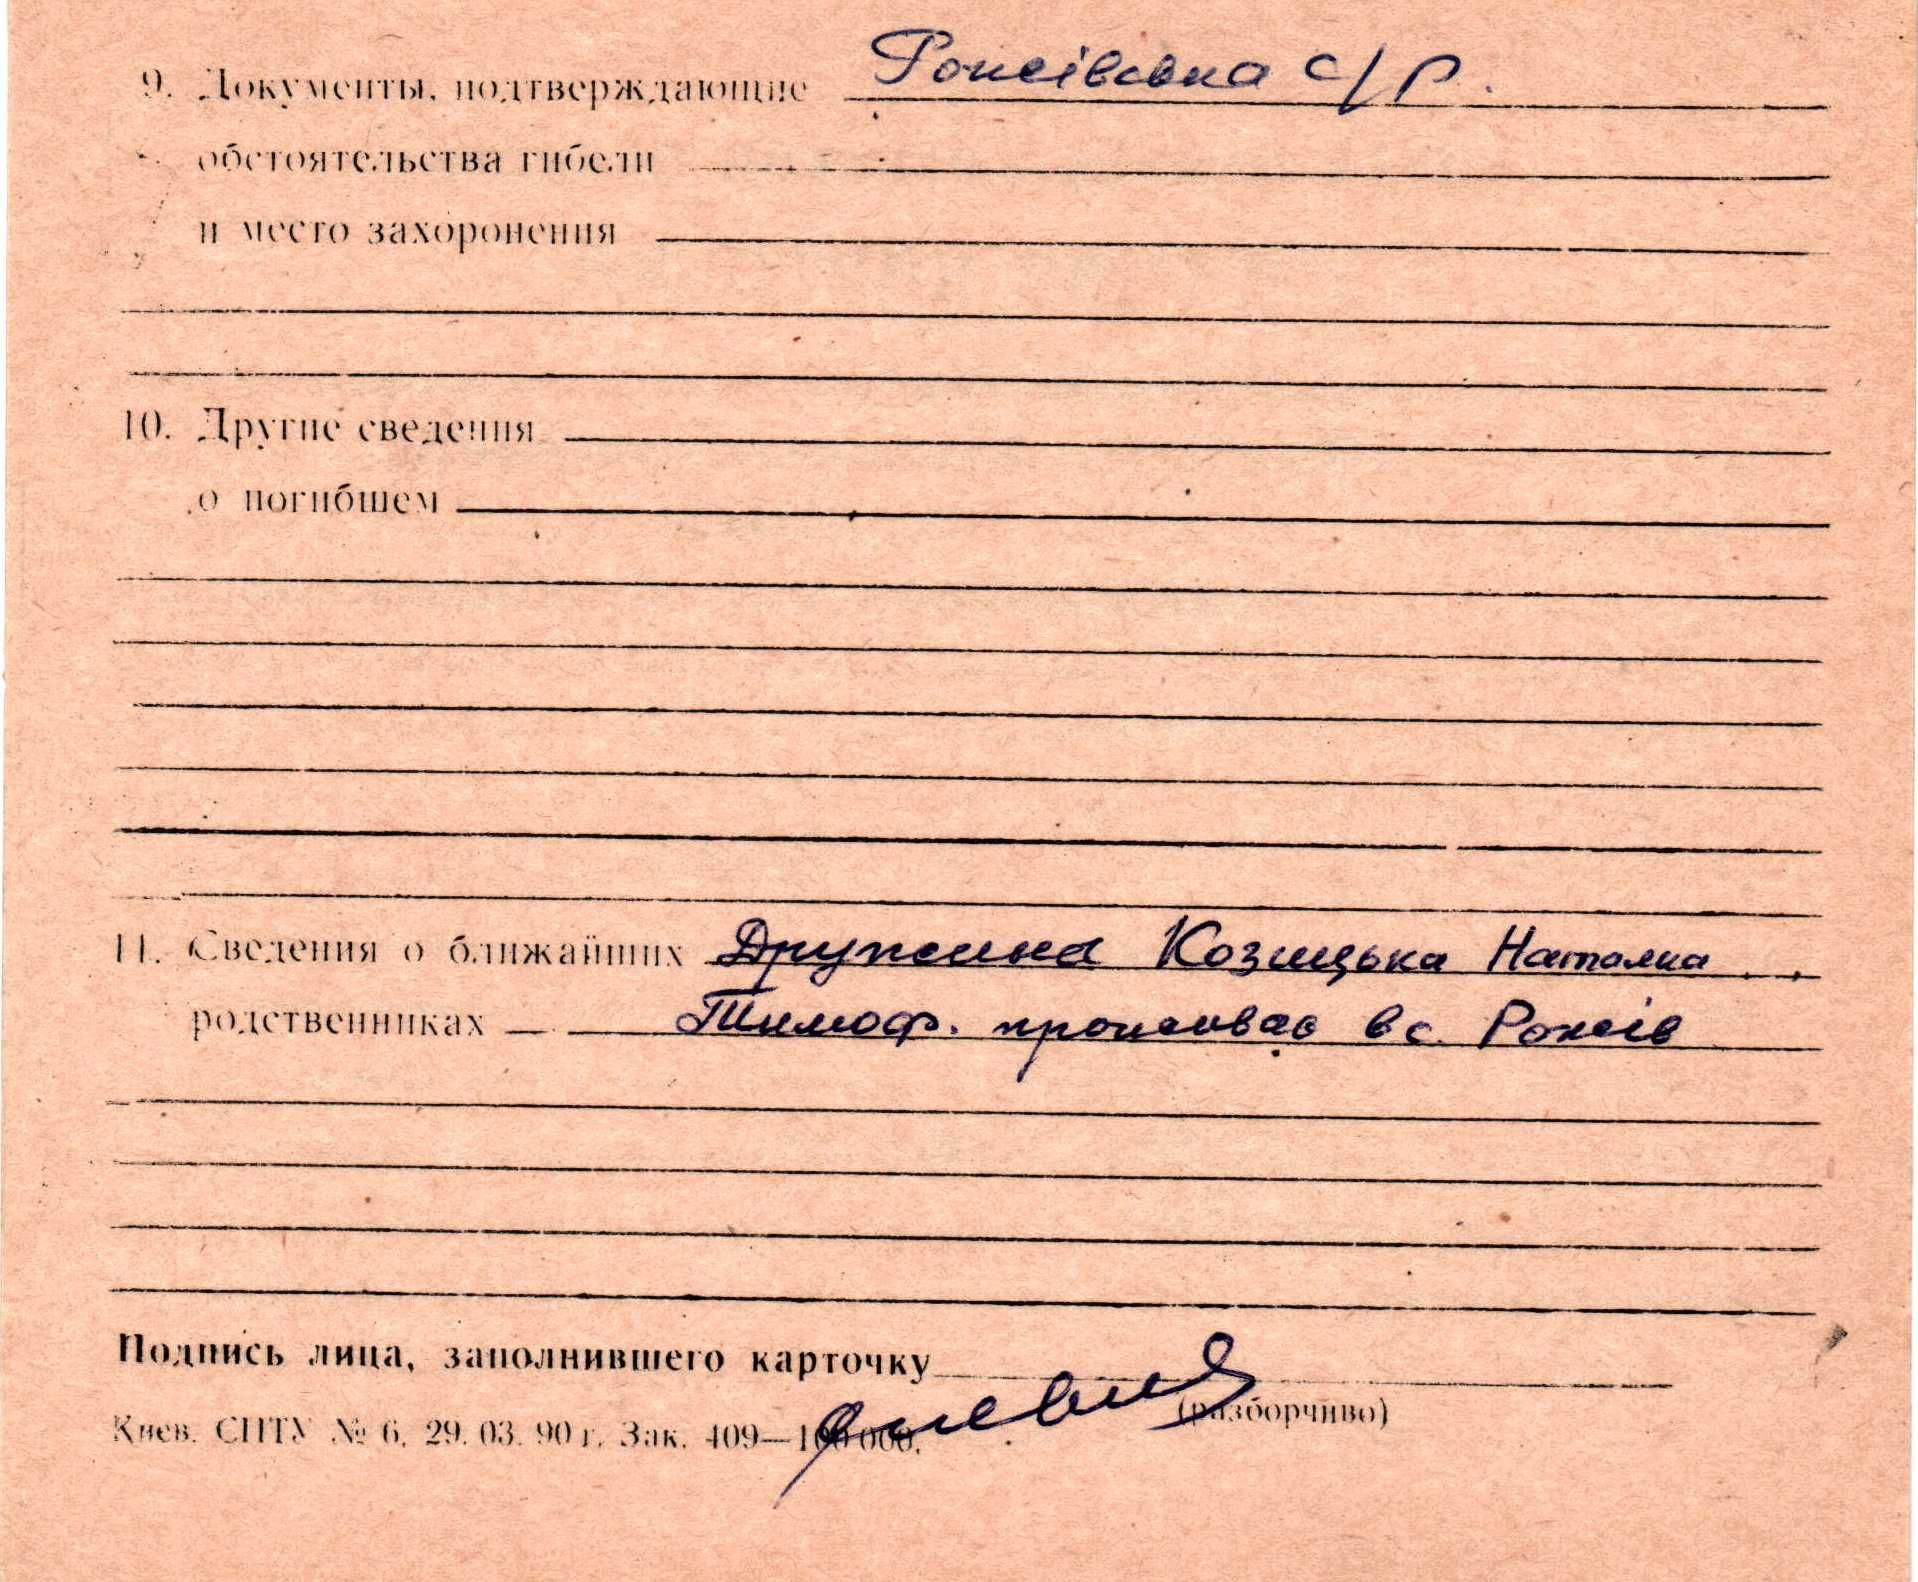 9. Документы, подтверждающие Рожсівська с/р.
обстоятельства гибели
и место захоронения
10. Другие сведения
о погибшем
11. Сведения о ближайших Дружина Козицька Наталка
родственниках Тимоф. проживає в с. Рожів
Подпись лица, заполнившего карточку
(разборчиво)
Киев. СПТУ № 6, 29. 03. 90 г. Зак. 409—100 000.